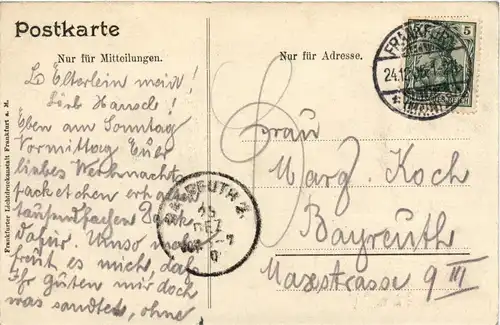 Postkarte
Nur für Mitteilungen.
Nur für Adresse.
L. Elterlein meine!
Lieb Hansel!
Eben am Sonntag
Vormittag Euer
liebes Weihnachts
packetchen erhalten
tausendfachen Dank
dafür. Umso mehr
freut es mich, daß
Ihr Guten mir doch
was sandtet, ohne
Frankfurter Lichtdruckanstalt Frankfurt a. M.
FRANKFURT
24.12.
5
BAYREUTH 2
25
DEZ
6-7
Frau
Marg. Koch
Bayreuth
Maxstrasse 9 III